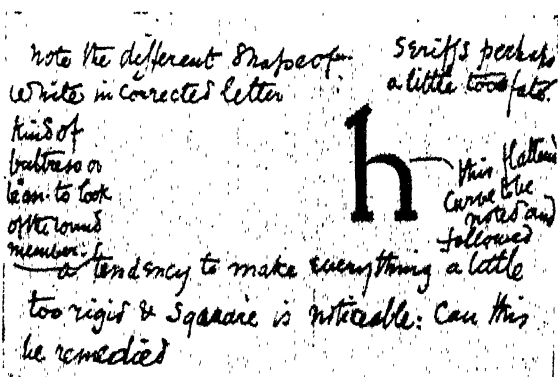 Note the different shape of
white in corrected letter
Serifs perhaps
a little too fat.
Kind of
buttress or
lean-to look
of the round
member.
h
this flattened
curve to be
noted and
followed
a tendency to make everything a little
too rigid & square is noticeable: Can this
be remedied